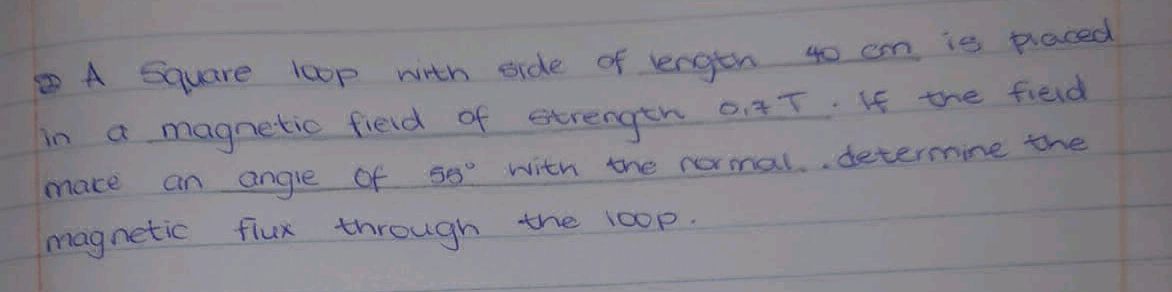 ② A square loop with side of length 40 cm is placed
in a magnetic field of strength 0,7 T. If the field
make an angle of 55° with the normal. determine the
magnetic flux through the loop.